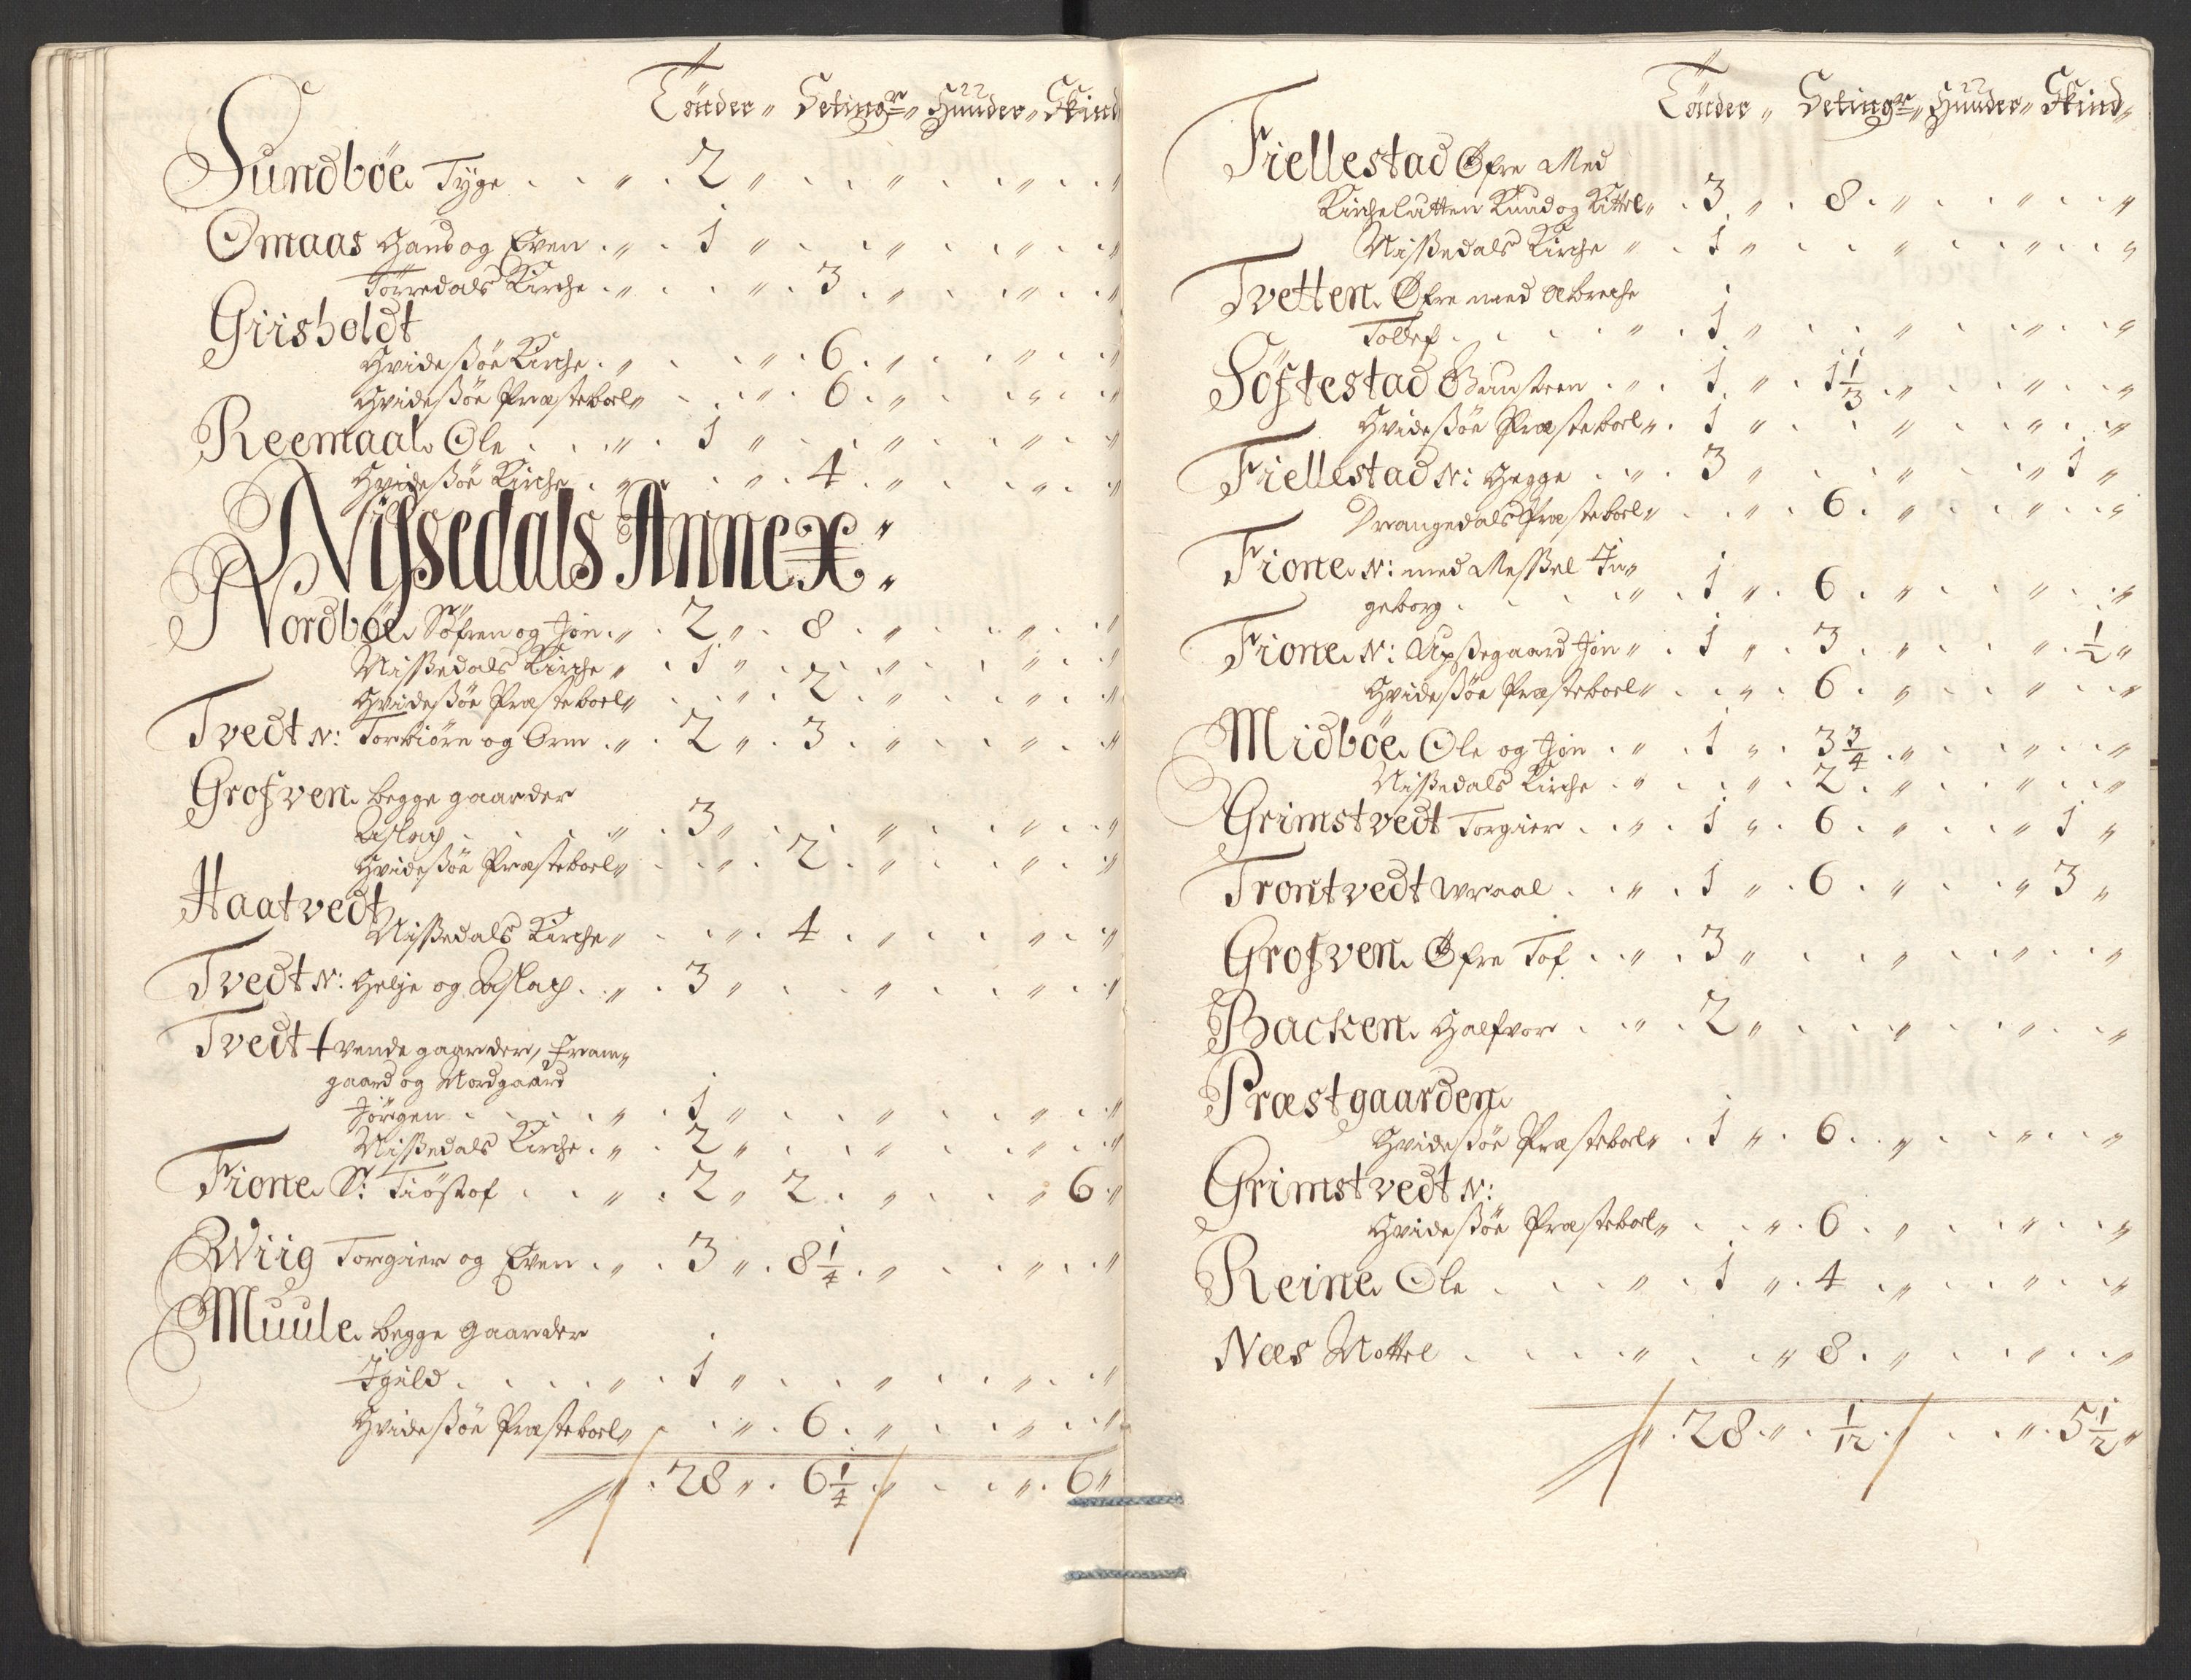 Tönder „ Setingr „ Huuder „ Skind
Sundböe Tyge . . „ . 2 „ . . „ . . „ . . „
Omaas Hans og Even . „ . 1 „ . . „ . . „ . . „
Törredals Kirche . „ . . „ . 3 . „ . . „ . . „
Griisholdt
Hvidesßöe Kirche . „ . . „ . 6 . „ . . „ . . „
Hvidesßöe Præsteboel „ . . „ . 6 . „ . . „ . . „
Reemaal Ole . . . „ . 1 „ . . „ . . „ . . „
Hvidesßöe Kirche . „ . . „ . 4 . „ . . „ . . „
Nissedals Annex :
Nordböe Söfren og Jon . „ . 2 „ . 8 . „ . . „ . . „
Nisßedals Kirche „ . 1 „ . . „ . . „ . . „
Hvidesßöe Præsteboel „ . . „ . 2 . „ . . „ . . „
Tvedt N: Torbiörn og Orm . „ . 2 „ . 3 . „ . . „ . . „
Grofven begge gaarder
Aslach . . . . „ . 3 „ . . „ . . „ . . „
Hvidesßöe Præsteboel „ . . „ . 2 . „ . . „ . . „
Haatvedt
Nisßedals Kirche „ . . „ . 4 . „ . . „ . . „
Tvedt N: Helje og Aslach . „ . 3 „ . . „ . . „ . . „
Tvedt tvende gaarder, Fram„
gaard og Nordgaard
Jörgen . . . . „ . 1 „ . . „ . . „ . . „
Nisßedals Kirche . „ . 2 „ . . „ . . „ . . „
Fione S: Tiöstof . . „ . 2 „ 2 . „ . . „ 6 „
Wiig Torgier og Even . „ . 3 „ . 8 1/4 . „ . . „ . . „
Muule begge gaarder
Tgield . . . . „ . 1 „ . . „ . . „ . . „
Hvidesßöe Præsteboel „ . . „ . 6 . „ . . „ . . „
„ . 28 „ . 6 1/4 . „ . . „ . 6 „
Tönder „ Setingr „ Huuder „ Skind „
Fiellestad Øfre Med
Kirchelutten Knud og Kittel „ . 3 „ . 8 . „ . . „ . . „
Nisßedals Kirche „ . 1 „ . . „ . . „ . . „
Tvetten Øfre med Abreche
Tollef . . . . „ . 1 „ . . „ . . „ . . „
Söftestad Gunsteen . „ . 1 „ . 1 1/3 . „ . . „ . . „
Hvidesßöe Præsteboel „ . 1 „ . . „ . . „ . . „
Fiellestad N: Hegge . . „ . 3 „ . . „ . . „ 1 „
Drangedals Præsteboel „ . . „ . 6 . „ . . „ . . „
Fione N: med Messel In„
geborg . . . . „ . 1 „ . 6 . „ . . „ . . „
Fione N: Upsßegaard Jon „ . 1 „ . 3 . „ . . „ . 1/2 „
Hvidesßöe Præsteboel „ . . „ . 6 . „ . . „ . . „
Midböe Ole og Jon . . „ . 1 „ . 3 3/4 . „ . . „ . . „
Nisßedals Kirche . „ . . „ . 2 . „ . . „ . . „
Grimstvedt Torgier . . „ . 1 „ . 6 . „ . . „ 1 „
Trontvedt Wraal . . „ . 1 „ . 6 . „ . . „ 3 „
Grofven Øfre Tof . . „ . 3 „ . . „ . . „ . . „
Backen Halfvor . . „ . 2 „ . . „ . . „ . . „
Præstgaarden
Hvidesßöe Præsteboel „ . 1 „ . 6 . „ . . „ . . „
Grimstvedt N:
Hvidesßöe Præsteboel „ . . „ . 6 . „ . . „ . . „
Reine Ole . . . „ . 1 „ . 4 . „ . . „ . . „
Næs Nottel . . . . „ . . „ 8 . „ . . „ . . „
„ . 28 „ . 1/12 . . . „ . 5 1/2 „